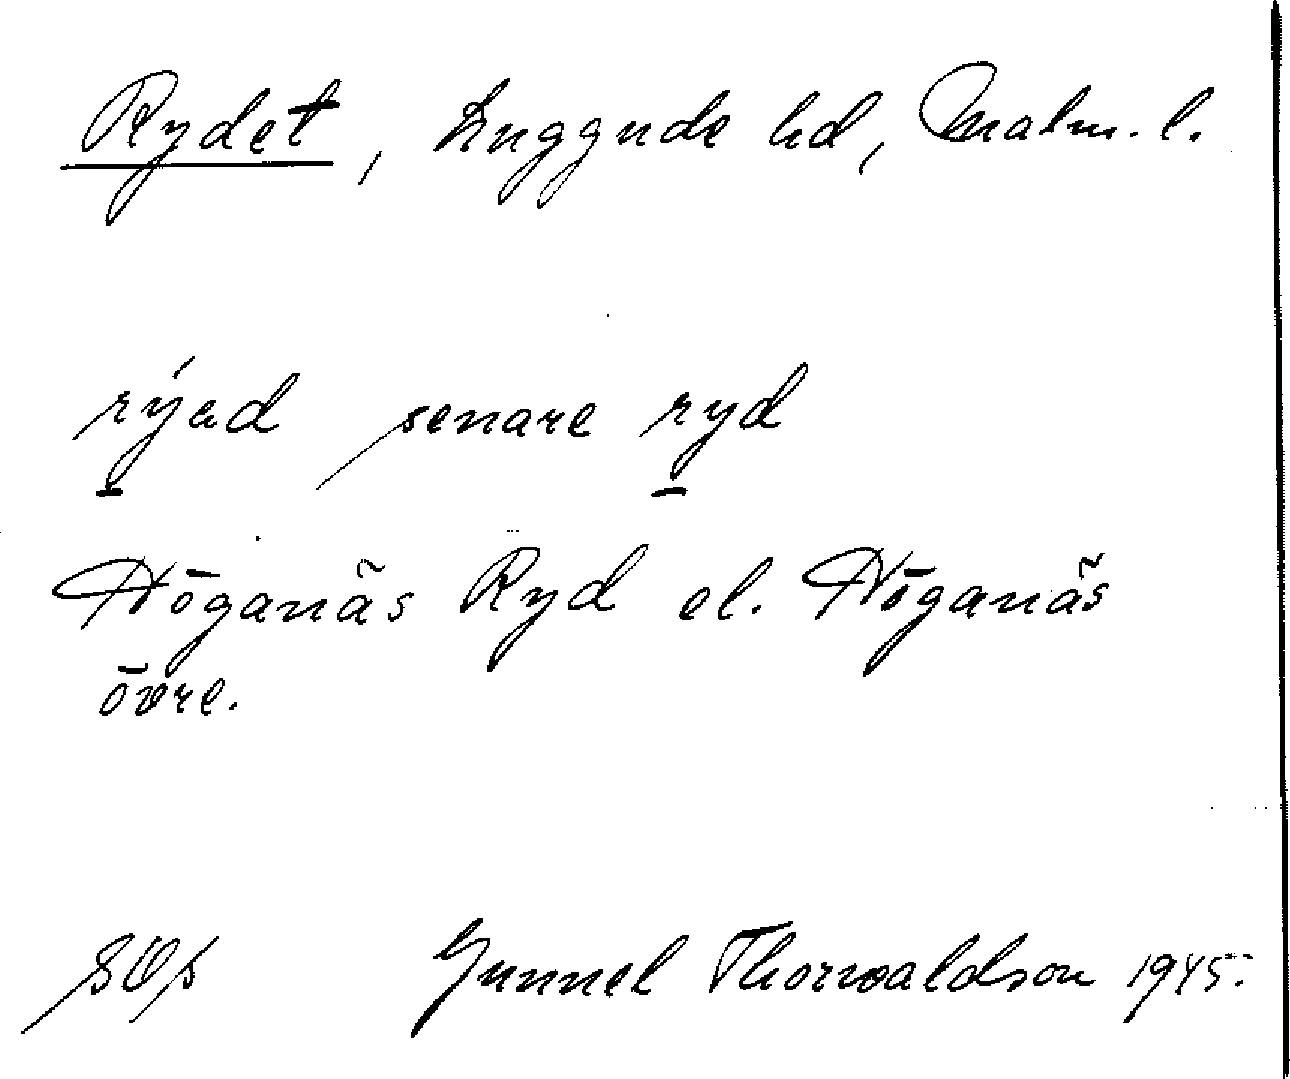 Rydet, Luggude hd, Malm. l.
rýəd senare ryd
Höganäs Ryd el. Höganäs
övre.
Gunnel Thorwaldson 1945.